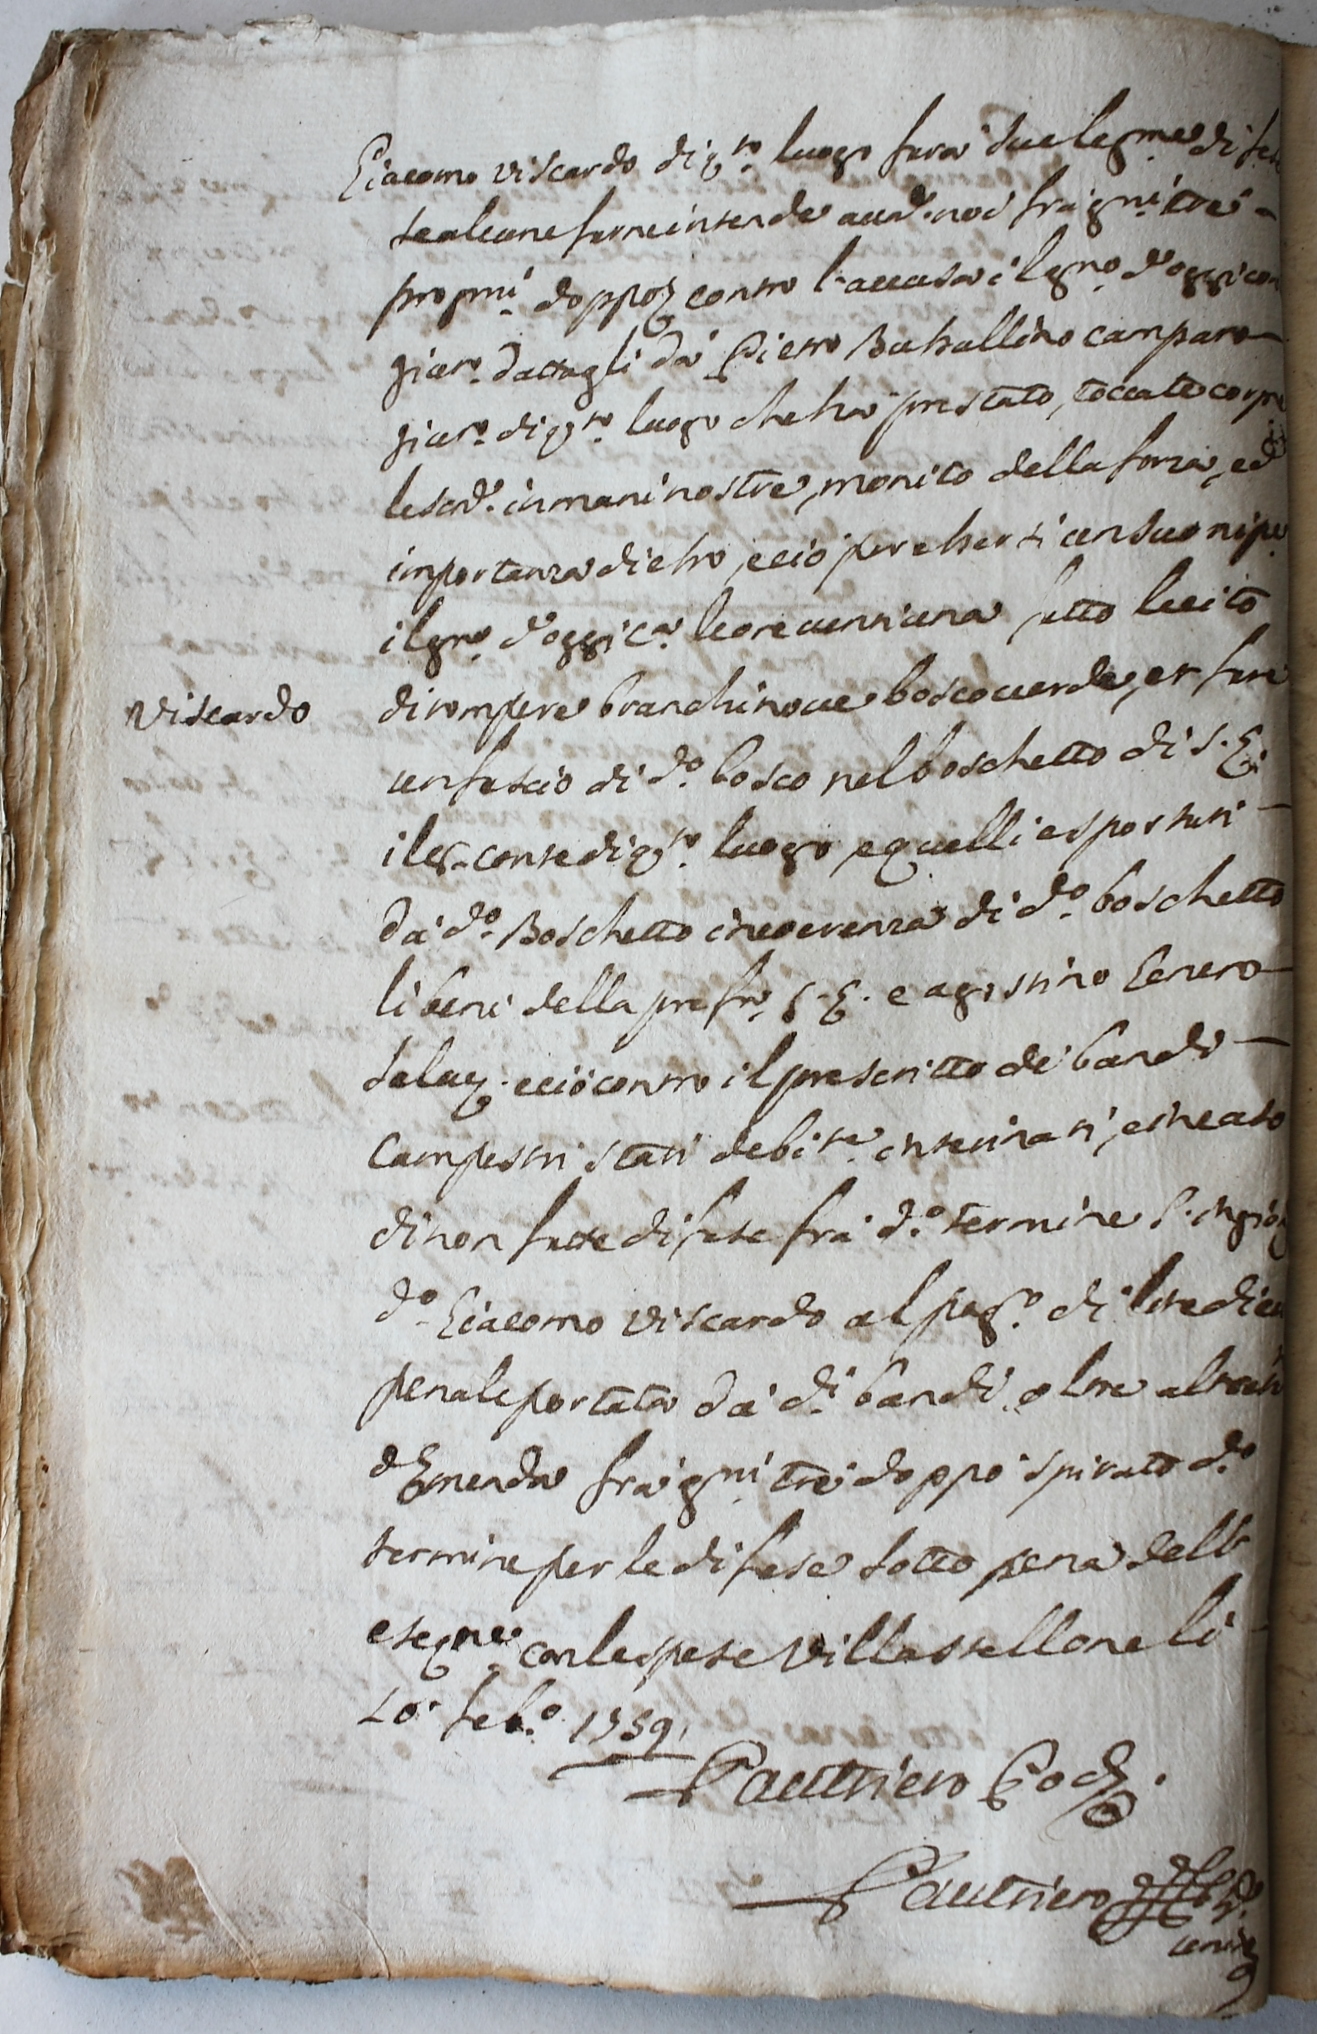 Giacomo Viscardo di q.to luogo farà sue leg.me dife
se alcune farne intende auan. noi fra g.ni tre
pros.mi doppo contro l'accusa il g.no d'oggi con
giur.o dattagli da Pietro Battallino camparo
giur.o di q.to luogo che ha prestato, toccate corp.
le scr.e in mani nostre, monito della forza, ed
importanza di esso, e ciò per essersi un suo nipe
il g.no d'oggi c.a le ore uentiuna fatto lecito
Viscardo
di rompere branchi noue bosco uerde, et fare
un fascio di d.o bosco nel boschetto di S. E.
il sig. conte di q.to luogo, e quelli esportati
da d.o Boschetto in coerenza di d.o boschetto
li beni della pref.a S. E. e agostino Genero
saluo, e ciò contro il prescritto de bandi
Campestri stati debit.e interinati, e in caso
di non fatte difese fra d.o termine s'ingion
d.o Giacomo Viscardo al pag.to di lire dieci
penale portata da d.i bandi, oltre altretta
d'Emenda fra g.ni tre doppo spirato d.o
termine per le difese sotto pena dell'
esecu.ne con le spese Villastellone li
20. feb.o 1759.
Gauttiero Pod.
Gauttiero